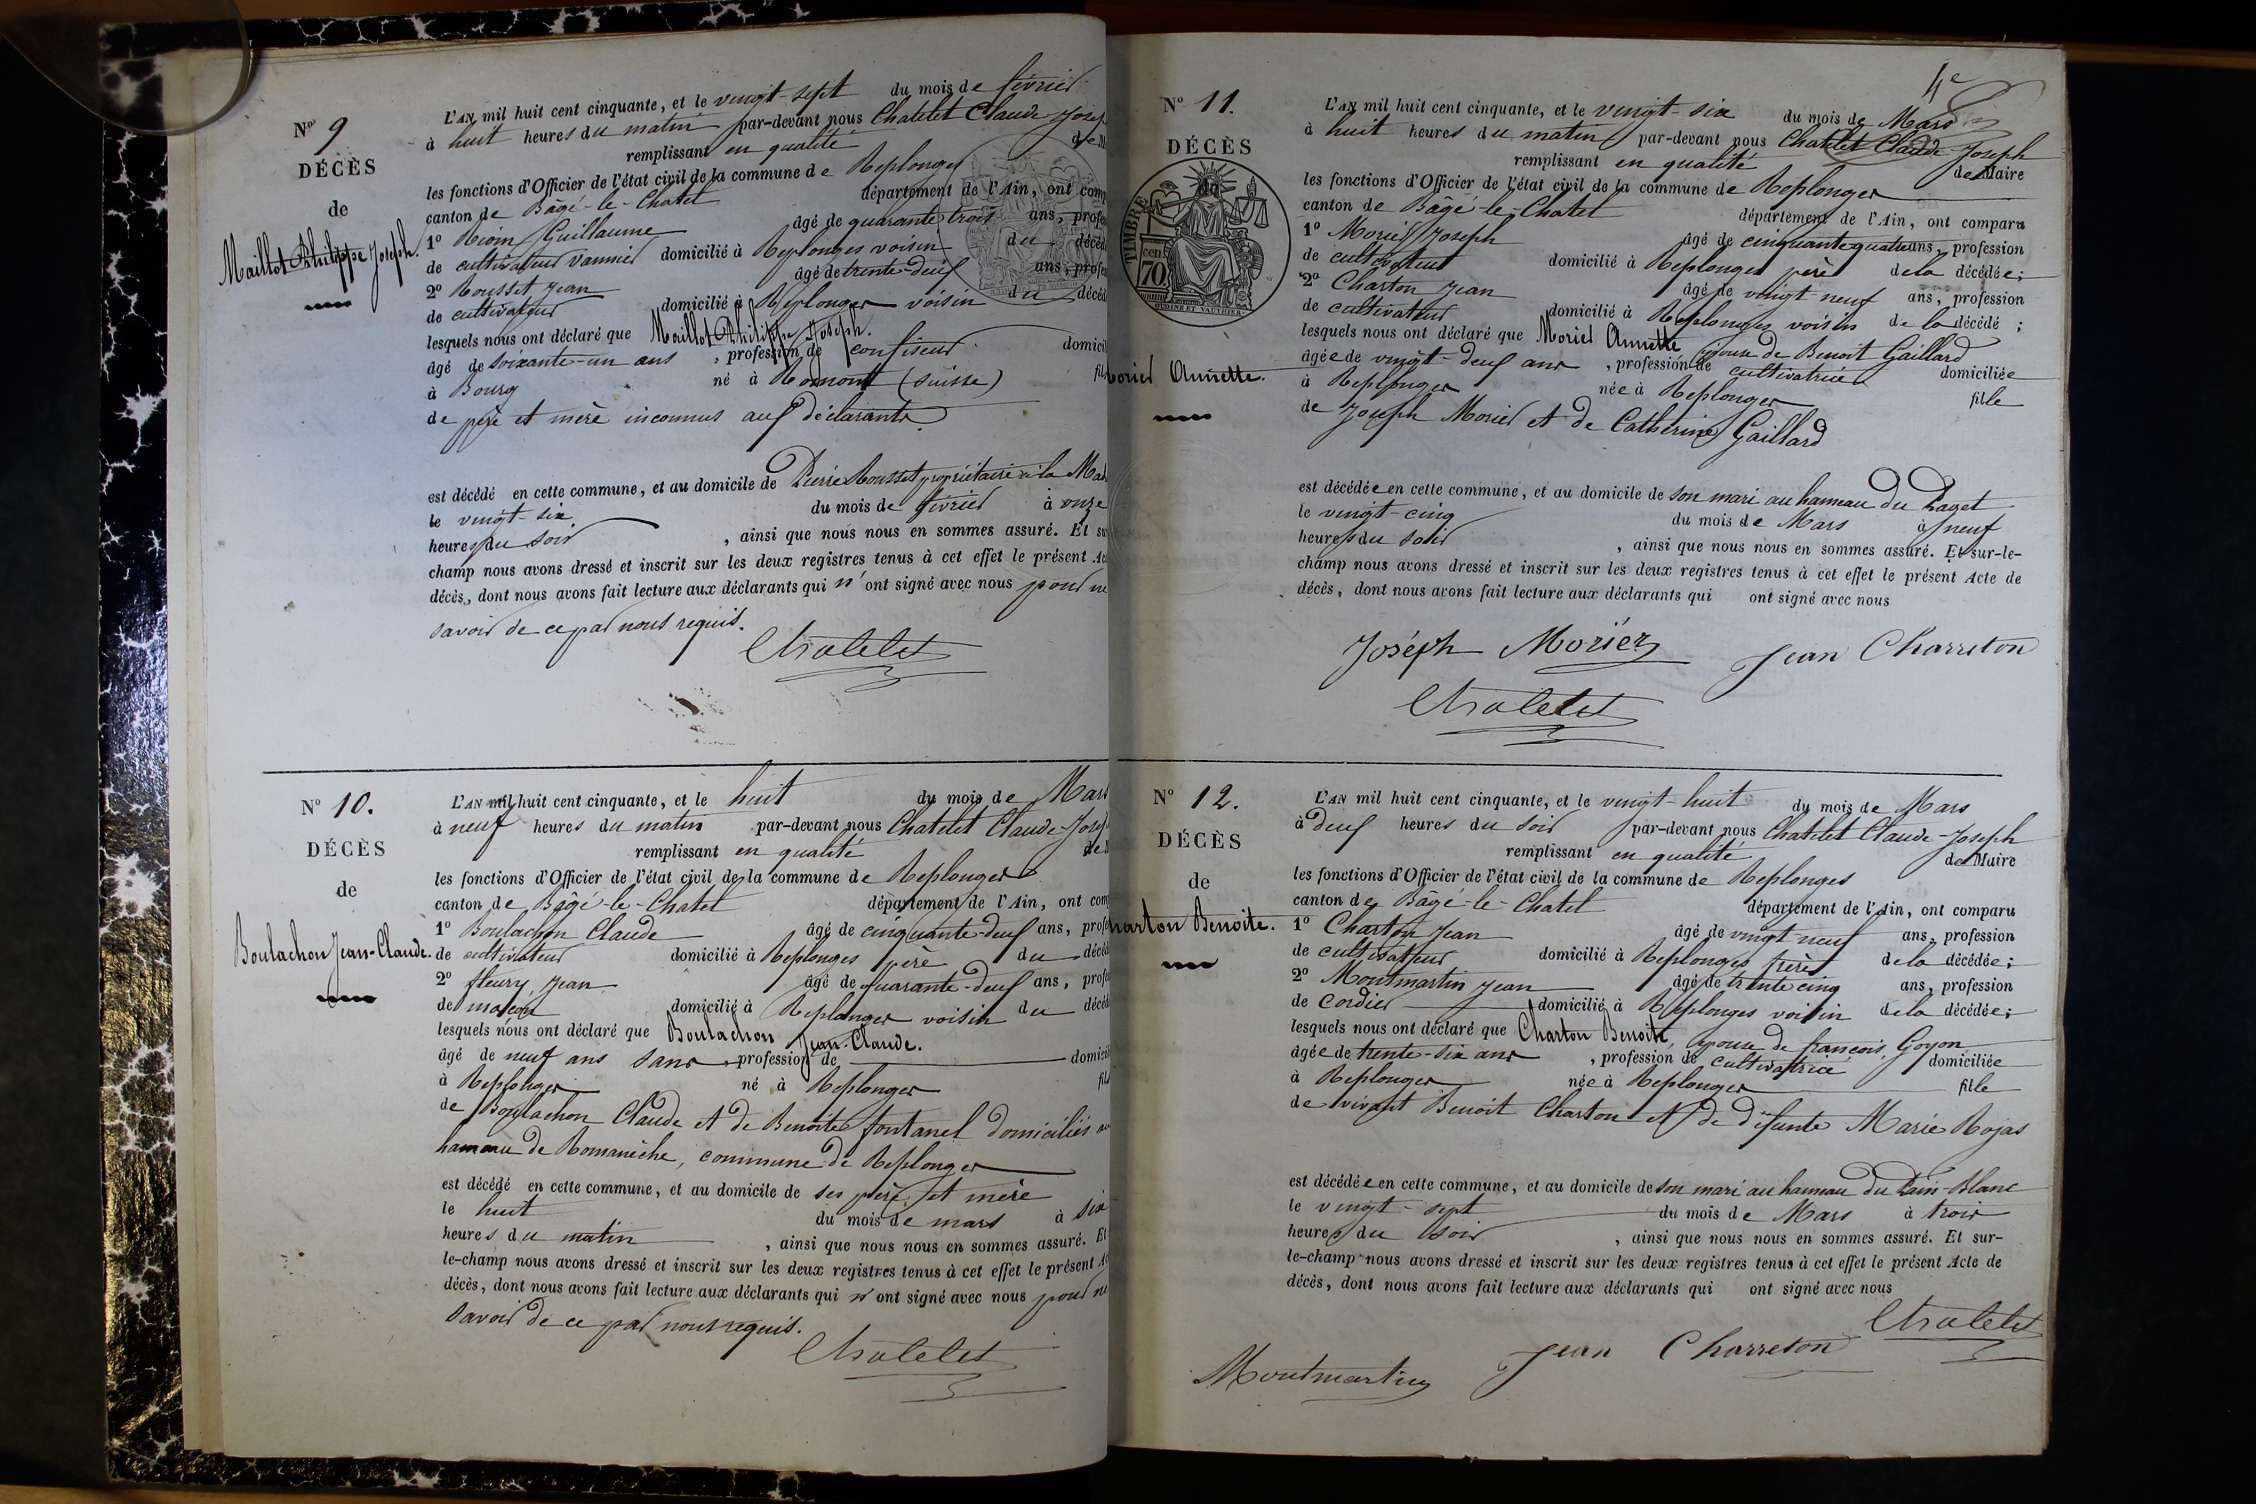 Nº 9
DÉCÈS
de
Maillot Philippe Joseph.
L'AN mil huit cent cinquante, et le vingt-sept du mois de février
à huit heures du matin par-devant nous Chatelet Claude-Josep
remplissant en qualité de M
les fonctions d'Officier de l'état civil de la commune de Replonges
canton de Bâgé-le-Chatel département de l'Ain, ont comp
1º Guillaume âgé de quarante trois ans, profes
de cultivateur vannier domicilié à Replonges voisin du décéd
2º Rousset Jean âgé de trente-deux ans, profes
de cultivateur domicilié à Replonges voisin du décéd
lesquels nous ont déclaré que Maillot Philippe Joseph.
âgé de soixante-un ans, profession de confiseur domicil
à Bourg né à Romont (Suisse) fils
de père et mère inconnus aux déclarants
est décédé en cette commune, et au domicile de Pierre Rousset propriétaire à la Mad
le vingt-six du mois de février à onze
heures du soir, ainsi que nous nous en sommes assuré. Et su
champ nous avons dressé et inscrit sur les deux registres tenus à cet effet le présent Ac
décès, dont nous avons fait lecture aux déclarants qui n'ont signé avec nous pour ne
savoir de ce par nous requis.
Chatelet
Nº 10.
DÉCÈS
de
Boulachon Jean-Claude.
L'AN mil huit cent cinquante, et le huit du mois de Mars
à neuf heures du matin par-devant nous Chatelet Claude-Josep
remplissant en qualité de M
les fonctions d'Officier de l'état civil de la commune de Replonges
canton de Bâgé-le-Chatel département de l'Ain, ont com
1º Boulachon Claude âgé de cinquante-deux ans, profes
de cultivateur domicilié à Replonges père du décéd
2º fleury Jean âgé de quarante-deux ans, profes
de maçon domicilié à Replonges voisin du décéd
lesquels nous ont déclaré que Boulachon Jean-Claude.
âgé de neuf ans sans profession de domicil
à Replonges né à Replonges fils
de Boulachon Claude et de Benoite fontanel domiciliés au
hameau de Romanèche, commune de Replonges
est décédé en cette commune, et au domicile de ses père et mère
le huit du mois de mars à six
heures du matin, ainsi que nous nous en sommes assuré. Et
le-champ nous avons dressé et inscrit sur les deux registres tenus à cet effet le présent Ac
décès, dont nous avons fait lecture aux déclarants qui n'ont signé avec nous pour ne
savoir de ce par nous requis.
Chatelet
4e
Nº 11.
DÉCÈS
de
TIMBRE
70 cen
Morier Annette.
L'AN mil huit cent cinquante, et le vingt-six du mois de Mars
à huit heures du matin par-devant nous Chatelet Claude-Joseph
remplissant en qualité de Maire
les fonctions d'Officier de l'état civil de la commune de Replonges
canton de Bâgé-le-Chatel département de l'Ain, ont comparu
1º Morier Joseph âgé de cinquante quatre ans, profession
de cultivateur domicilié à Replonges père de la décédée;
2º Charton Jean âgé de vingt neuf ans, profession
de cultivateur domicilié à Replonges voisin de la décédé;
lesquels nous ont déclaré que Morier Annette épouse de Benoit Gaillard
âgée de vingt-deux ans, profession de cultivatrice domiciliée
à Replonges née à Replonges fille
de Joseph Morier et de Catherine Gaillard
est décédée en cette commune, et au domicile de son mari au hameau du Paget
le vingt-cinq du mois de Mars à neuf
heures du soir, ainsi que nous nous en sommes assuré. Et sur-le-
champ nous avons dressé et inscrit sur les deux registres tenus à cet effet le présent Acte de
décès, dont nous avons fait lecture aux déclarants qui ont signé avec nous
Joséph Moriér Jean Charreton
Chatelet
Nº 12.
DÉCÈS
de
harton Benoite.
L'AN mil huit cent cinquante, et le vingt-huit du mois de Mars
à deux heures du soir par-devant nous Chatelet Claude-Joseph
remplissant en qualité de Maire
les fonctions d'Officier de l'état civil de la commune de Replonges
canton de Bâgé-le-Chatel département de l'Ain, ont comparu
1º Charton Jean âgé de vingt-neuf ans, profession
de cultivateur domicilié à Replonges frère de la décédée;
2º Montmartin Jean âgé de trente cinq ans, profession
de cordier domicilié à Replonges voisin de la décédée;
lesquels nous ont déclaré que Charton Benoite, épouse de francois Goyon
âgée de trente-six ans, profession de cultivatrice domiciliée
à Replonges née à Replonges fille
de vivant Benoit Charton et de défunte Marie Rojas
est décédée en cette commune, et au domicile de son mari au hameau du Pain-Blanc
le vingt-sept du mois de Mars à trois
heures du soir, ainsi que nous nous en sommes assuré. Et sur-
le-champ nous avons dressé et inscrit sur les deux registres tenus à cet effet le présent Acte de
décès, dont nous avons fait lecture aux déclarants qui ont signé avec nous
Chatelet
Montmartin Jean Charreton